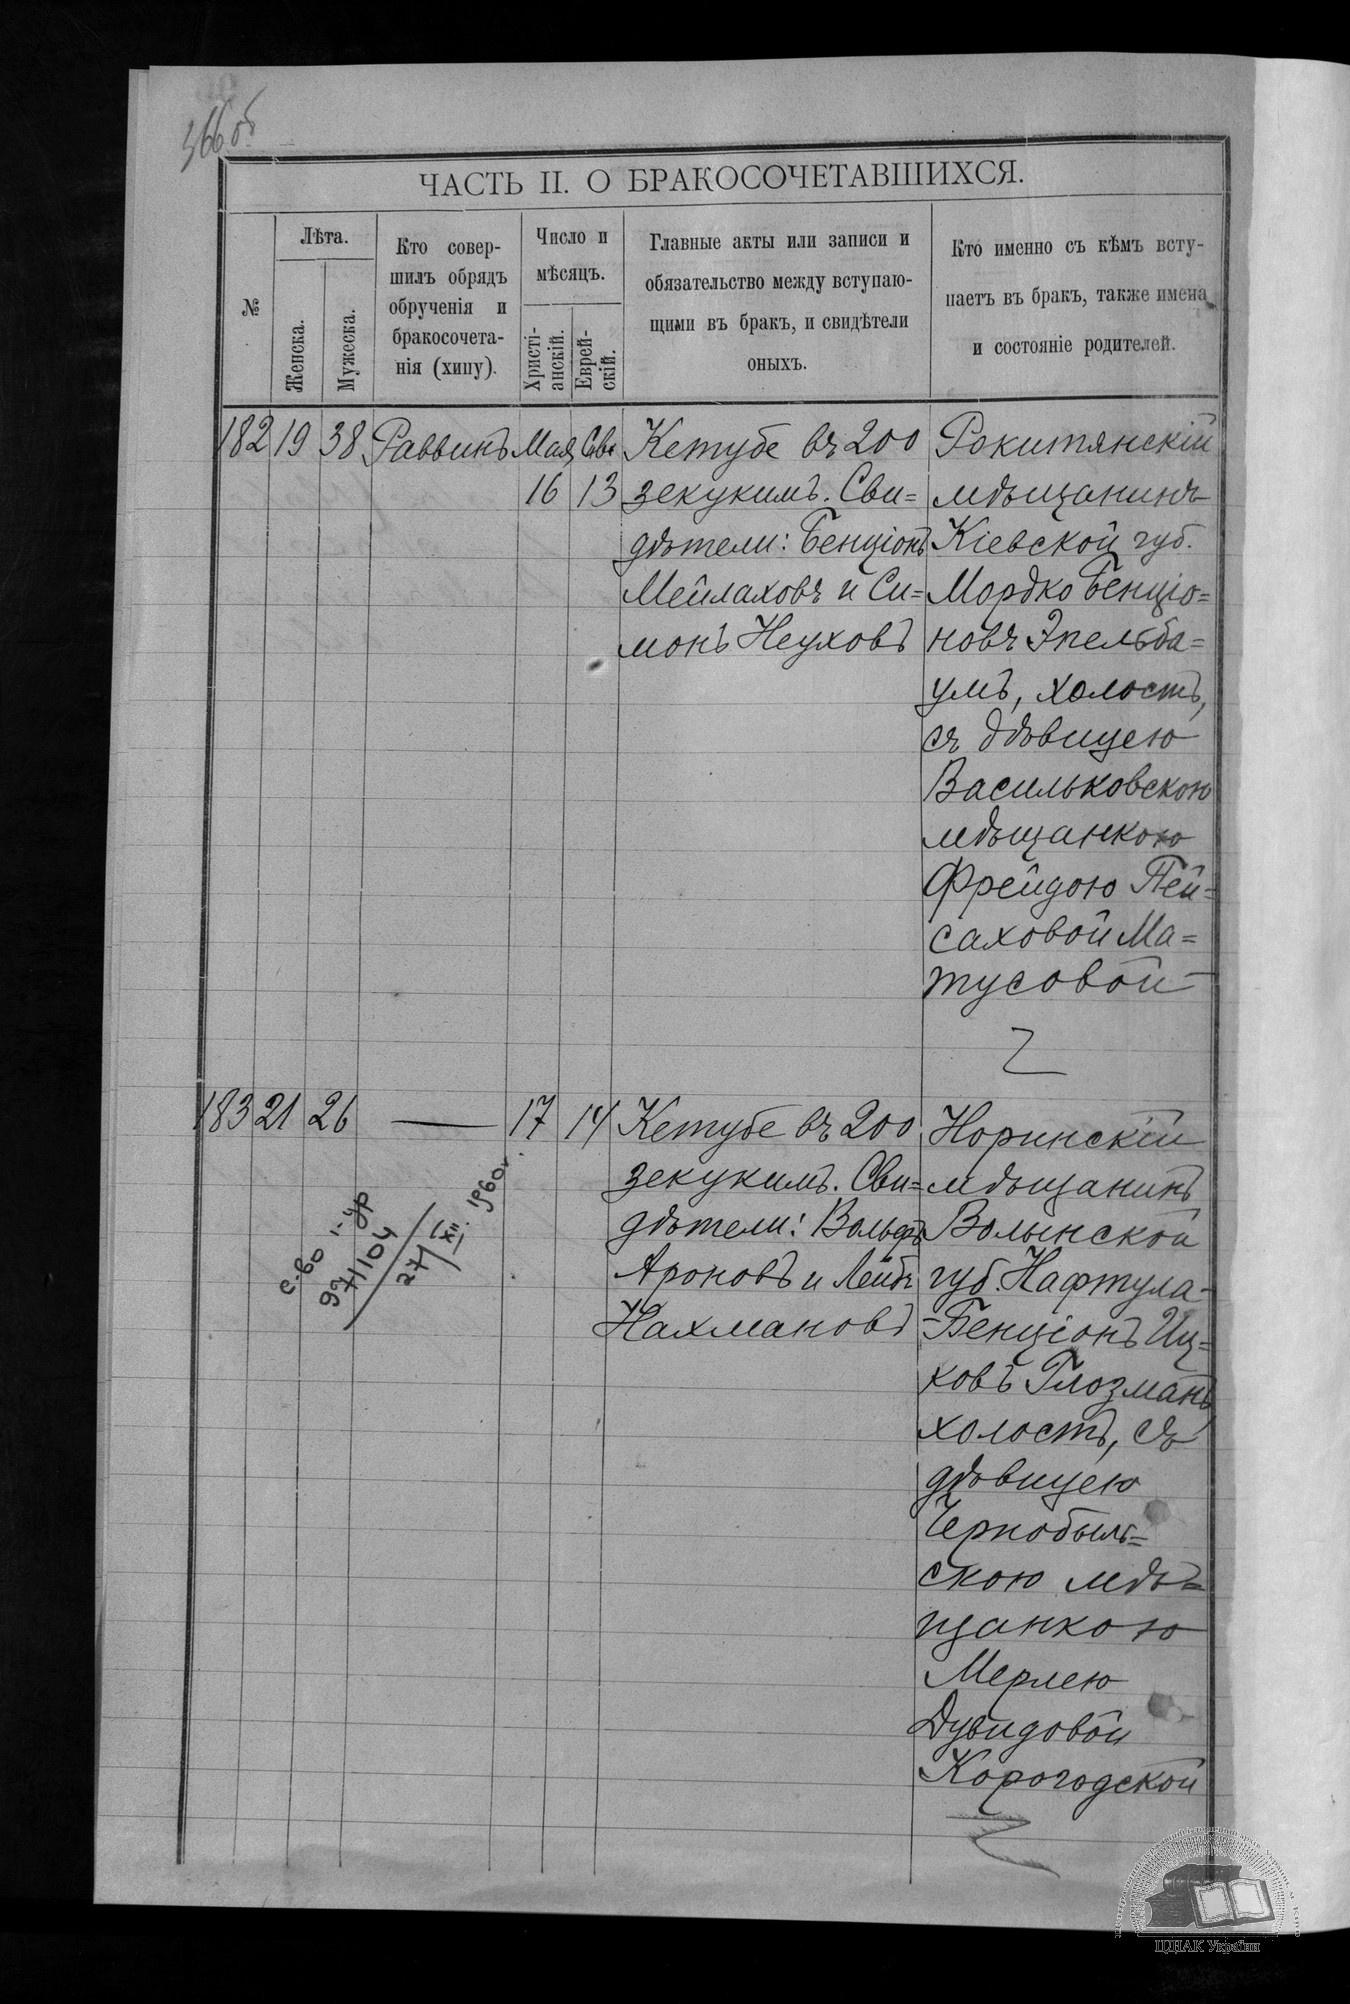 366об
ЧАСТЬ II. О БРАКОСОЧЕТАВШИХСЯ.
№
Лѣта.
Женска.
Мужеска.
Кто совер-
шилъ обрядъ
обрученія и
бракосочета-
нія (хипу).
Число и
мѣсяцъ.
Христі-
анскій.
Еврей-
скій.
Главные акты или записи и
обязательство между вступаю-
щими въ бракъ, и свидѣтели
оныхъ.
Кто именно съ кѣмъ всту-
паетъ въ бракъ, также имена
и состояніе родителей.
182 19 38 Раввинъ Мая
16 13
Кетубе въ 200
зекукимъ. Сви=
дѣтели: Бенціонъ
Мейлаховъ и Си=
монъ Неуховъ
Рокитянскій
мѣщанинъ
Кіевской губ.
Мордко Бенціо=
новъ Эпельба=
умъ, холостъ,
съ дѣвицею
Васильковскою
мѣщанкою
Фрейдою Пей=
саховой Ма=
тусовой
183 21 26 — 17 14
Кетубе въ 200
зекукимъ. Сви=
дѣтели: Вольфъ
Ароновъ и Лейбъ
Нахмановъ
Норинскій
мѣщанинъ
Волынской
губ. Нафтула-
-Бенціонъ Иц=
ковъ Глозманъ
холостъ, съ
дѣвицею
Чернобыль=
скою мѣ=
щанкою
Мерлею
Дувидовой
Корогодской
с-во 1-ур
971/104
27/XII. 1960г.
ЦДІАК України